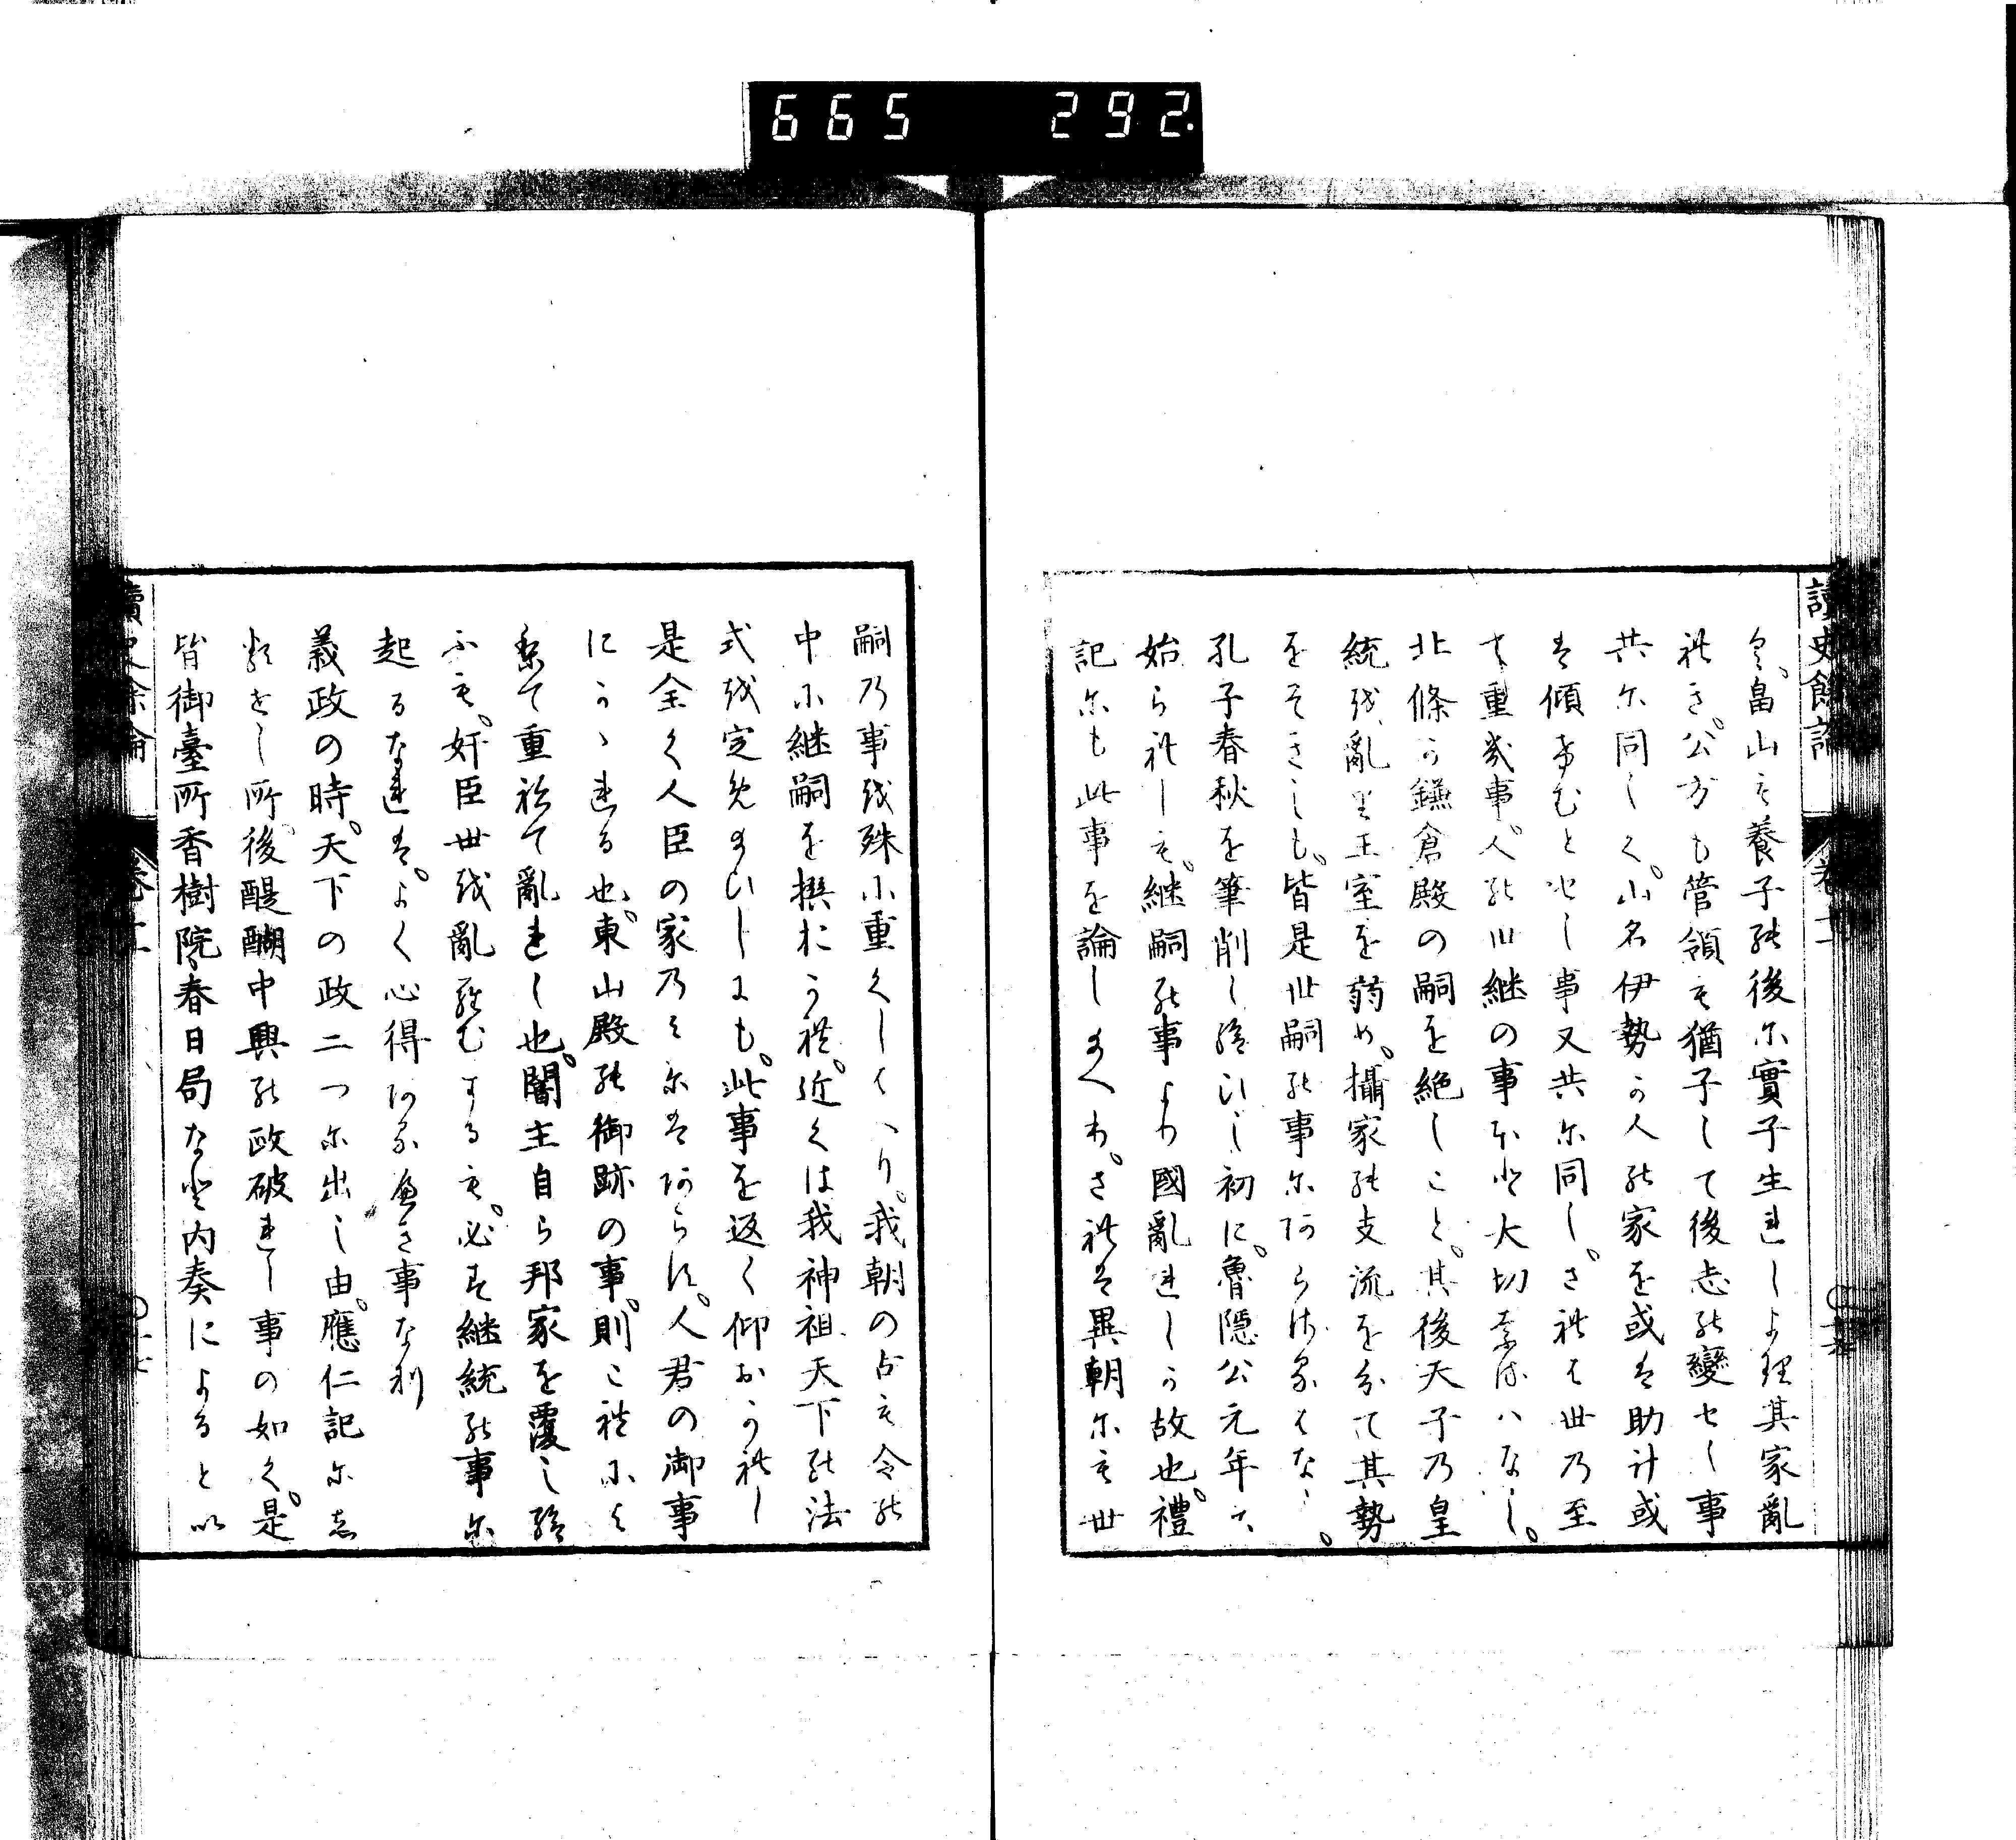 665 292
讀史餘論 卷十二
り。畠山も養子の後に實子生れしより其家亂
れき。公方も管領も猶子して後志の變セし事
共に同しく。山名伊勢か人の家を或は助け或
は傾けむとせし事又共に同し。されは世乃至
て重き事。人の世継の事ほと大切なるハなし。
北條か鎌倉殿の嗣を絶しこと。其後天子乃皇
統を亂り王室を弱め。攝家の支流を分て其勢
をそきしも。皆是世嗣の事にあらさるはなし。
孔子春秋を筆削し給ひし初に。魯隱公元年に
始られしも。継嗣の事より國亂れしか故也。禮
記にも此事を論しまへり。されは異朝にも世
嗣乃事を殊に重くしへり。我朝の古も令の
中に継嗣を撰おかる。近くは我神祖天下の法
式を定めまひしにも。此事を返く仰おかれし
是全く人臣の家乃みにはあらす。人君の御事
にかゝれる也。東山殿の御跡の事。則これに
て重ねて亂れし也。闇主自ら邦家を覆し給
ふも。奸臣世を亂らむするも。必す継統の事に
起るなれは。よく心得あるへき事なり
義政の時。天下の政二つに出し由。應仁記に志
るせし所。後醍醐中興の政破れし事の如く。是
皆御臺所香樹院春日局なと内奏によるとい
讀史餘論 卷十二